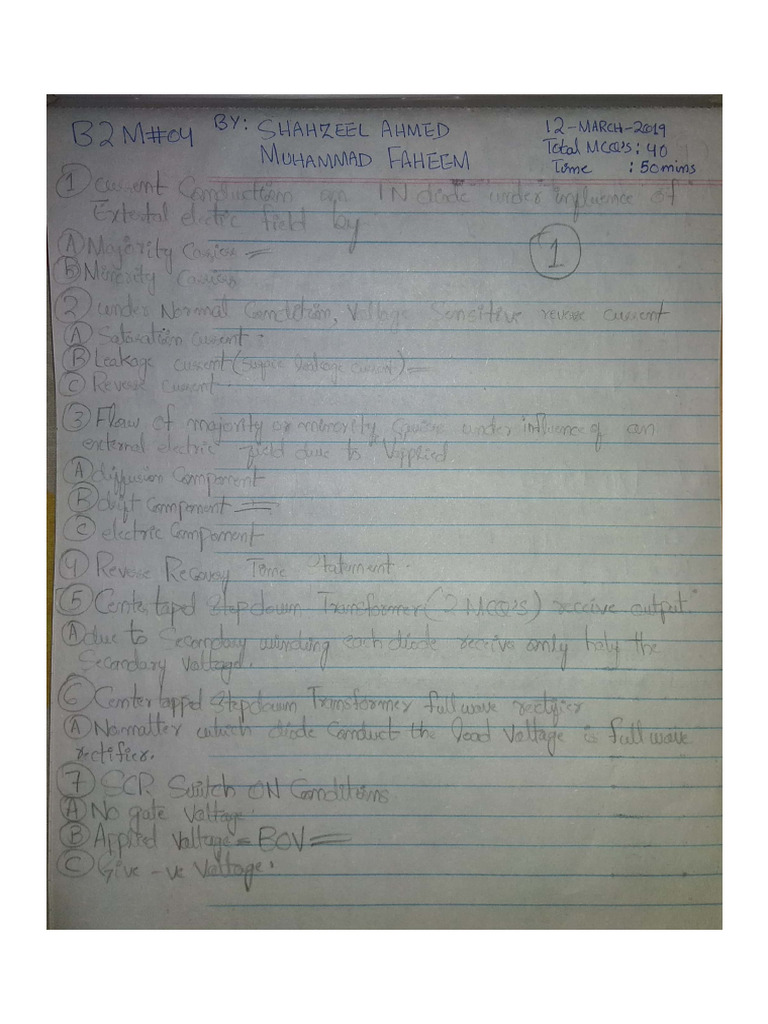 B2 M#04 BY: SHAHZEEL AHMED 12-MARCH-2019
MUHAMMAD FAHEEM Total MCQ'S: 40
Time : 50mins
① Current Conduction an IN diode under influence of
External electric field by
Ⓐ Majority Carrier =
Ⓑ Minority Carrier
①
② under Normal Condition, Voltage Sensitive reverse current
Ⓐ Saturation Current.
Ⓑ Leakage current (surface leakage current) =
Ⓒ Reverse Current.
③ Flow of majority or minority under influence of an
external electric field due to Vapplied
Ⓐ diffusion Component
Ⓑ drift Component =
Ⓒ electric Component
④ Reverse Recovery Time Statement.
⑤ Center taped Step down Transformer (2 MCQ'S) receive output.
Ⓐ due to Secondary winding each diode receive only half the
Secondary Voltage.
⑥ Center tapped Step down Transformer full wave rectifier
Ⓐ No matter which diode Conduct the load Voltage is full wave
rectifier.
⑦ SCR Switch ON Conditions
Ⓐ No gate Voltage.
Ⓑ Applied Voltage = BOV =
Ⓒ Give -ve Voltage.